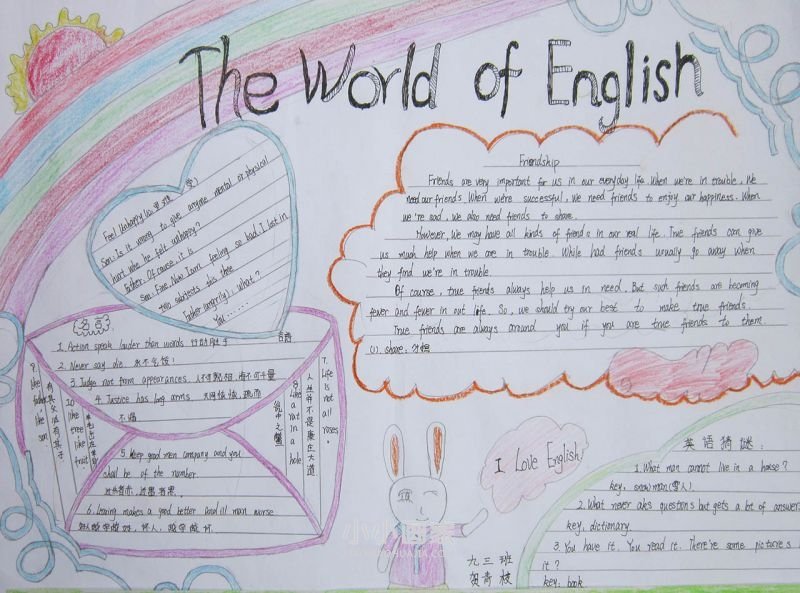 The World of English
Feel Unhappy
Son: Is it wrong to give anyone mental or physical
hurt who he felt unhappy?
Father: Of course it is.
Son: Fine Now I am feeling so bad I lost in
two subjects this
Father (angerly): What?
You ......
Friendship
Friends are very important for us in our everyday life. When we're in trouble, We
need our friends. When we're successful, we need friends to enjoy our happiness. When
we're sad, we also need friends to share.
However, We may have all kinds of friends in our real life. True friends can give
us much help when we are in trouble. While bad friends usually go away when
they find we're in trouble.
Of course, true friends always help us in need. But such friends are becoming
fever and fever in out life. So, we should try our best to make true friends.
True friends are always around you if you are true friends to them.
(1). share, 分担
名言:
1. Action speak lauder than words
2. Never say die. 永不气馁!
3. Judge not from appearances. 人不可貌相,海不可斗量
4. Justice has long arms. 天网恢恢,疏而
不漏
5. Keep good men company and you
shall be of the number.
6. Leaing makes a good better and ill man worse
好人越学越好,坏人,越学越坏
7. Life is not all roses.
人生并不是康庄大道.
8. Like a rat in a hole
瓮中之鳖
9. like father, like son
有其父必有其子.
10. like tree, like fruit
I Love English!
九三班
英语猜谜:
1. What man cannot live in a house?
key, snowman(雪人).
2. What never asks questions but gets a lot of answers
key, dictionary.
3. You have it. You read it. There're some pictures
it?
key: book